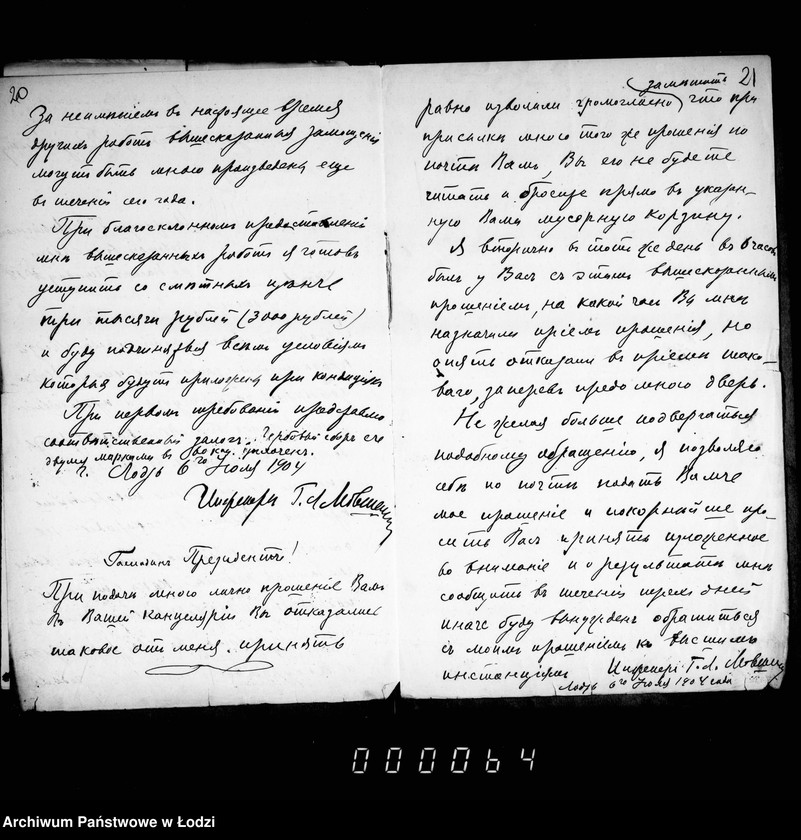 20
За неимѣніемъ въ настоящее время
другихъ работъ вышесказанныя замощенія
могутъ быть мною произведены еще
въ теченіи сего года.
При благосклонномъ предоставленіи
мнѣ вышесказанныхъ работъ я готовъ
уступить со смѣтныхъ цѣнъ
три тысячи рублей (3000 рублей)
и буду подчиняться всѣмъ условіямъ
которыя будутъ приложены при кондиціяхъ
При первомъ требованіи представлю
соотвѣтственный залогъ. Гербовый сборъ
двумя марками въ коп. уплоченъ.
г. Лодзь 6го Іюля 1904
Инженеръ Г. Л.
Господинъ Президентъ!
При подачи мною лично прошеніе Вамъ
въ Вашей Канцеляріи Вы отказались
таковое отъ меня принять
21
замѣтить
равно изволили громогласно что при
присылки мною того же прошенія по
почтѣ Вамъ, Вы его не будете
читать и бросите прямо въ указан-
ную Вами мусорную корзину.
Я вторично въ тотъ же день въ 6 часовъ
былъ у Васъ съ этимъ вышесказаннымъ
прошеніемъ, на какой часъ Вы мнѣ
назначили пріемъ прошенія, но
опять отказали въ пріемѣ тако-
ваго, заперевъ предо мною дверь.
Не желая больше подвергаться
подобному обращенію, я позволяю
себѣ по почтѣ подать Вамъ
мое прошеніе и покорнѣйше про-
сить Васъ принять изложенное
во вниманіе и о результатѣ мнѣ
сообщить въ теченіи трехъ дней
иначе буду вынужденъ обратиться
съ моимъ прошеніемъ къ высшимъ
инстанціямъ Инженеръ Г. Л.
Лодзь 6го Іюля 1904 года
000064
Archiwum Państwowe w Łodzi